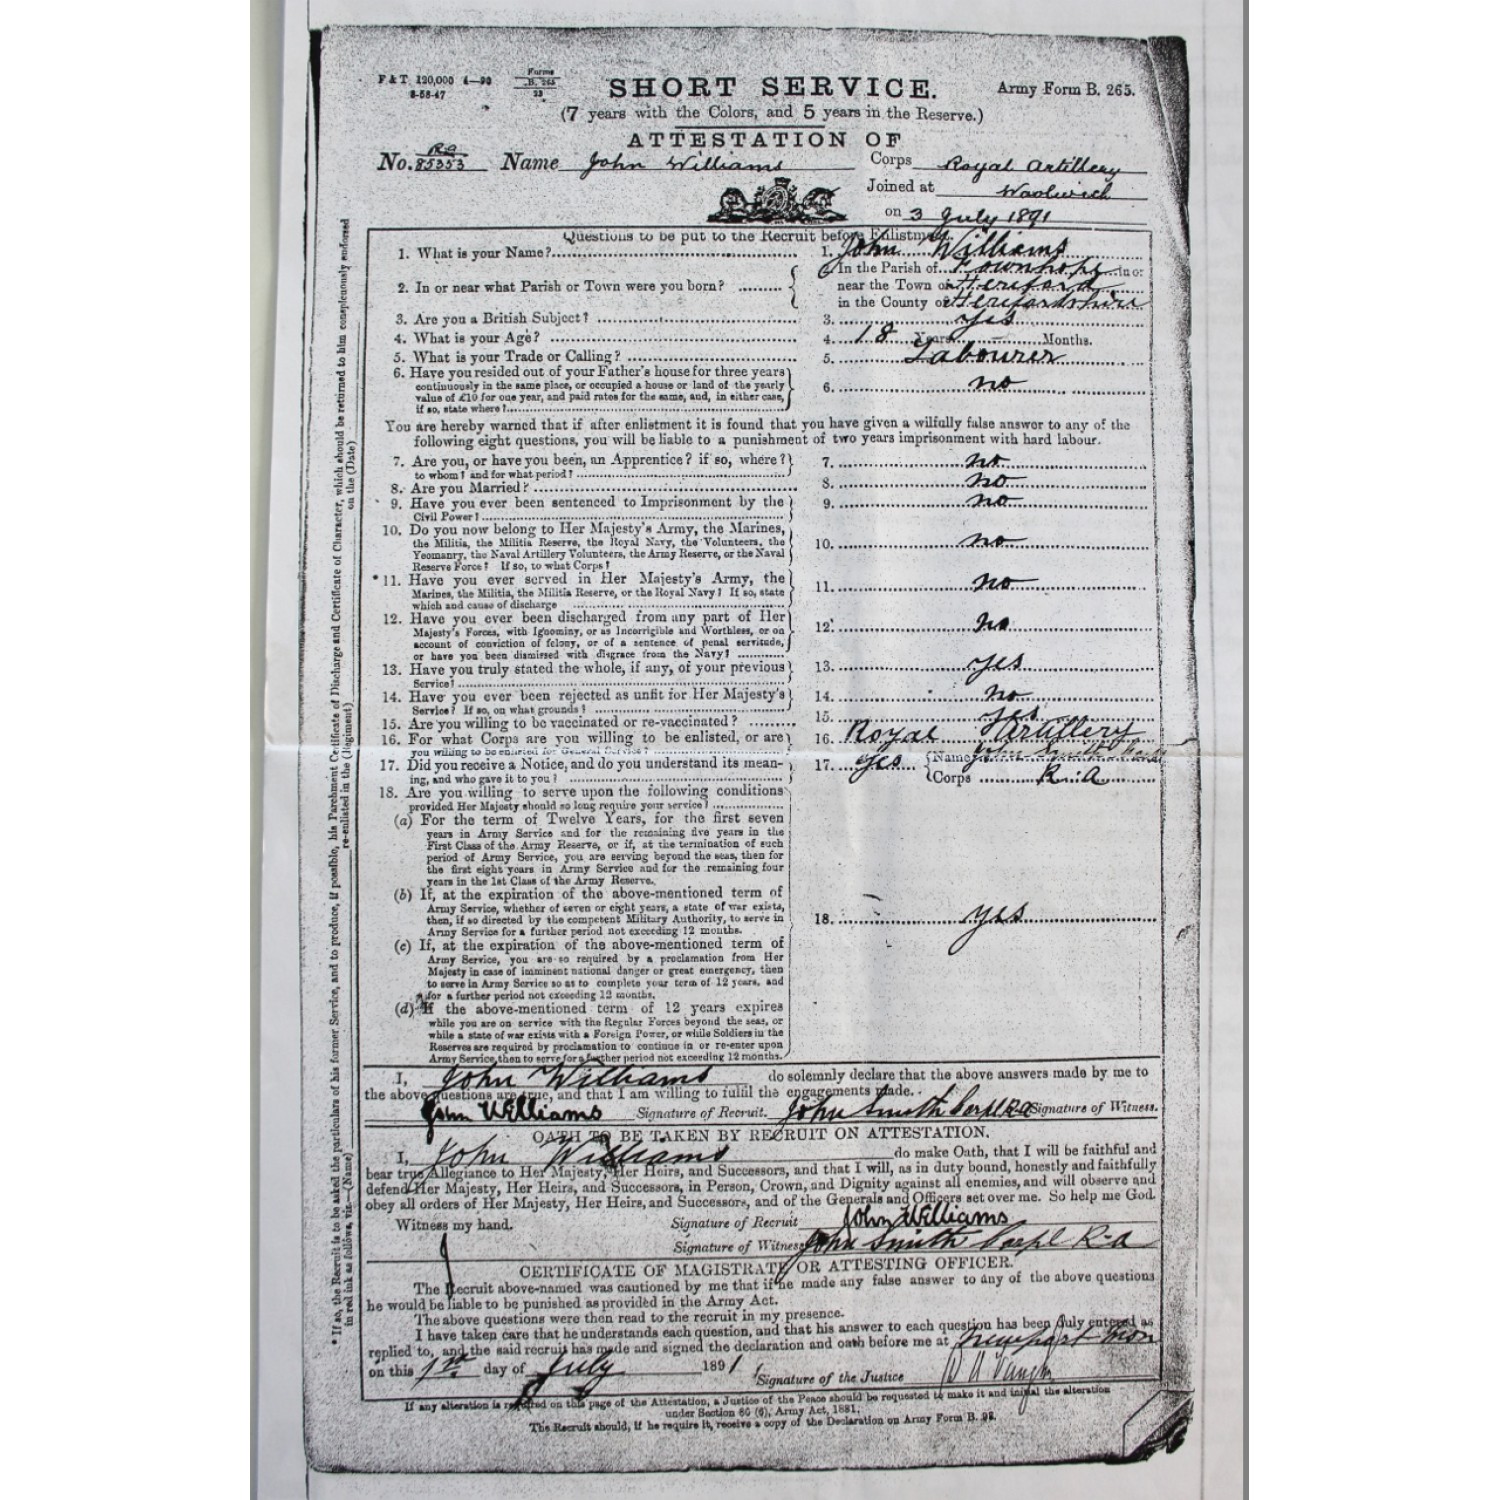 F & T. 120,000 4—90
8-56-47
Forms
B. 265
23
SHORT SERVICE.
Army Form B. 265.
(7 years with the Colors, and 5 years in the Reserve.)
ATTESTATION OF
No. RA 85353 Name John Williams Corps Royal Artillery
Joined at Woolwich
on 3 July 1891
Questions to be put to the Recruit before Enlistment.
1. What is your Name? 1. John Williams
2. In or near what Parish or Town were you born? In the Parish of Fownhope in or
near the Town of Hereford
in the County of Herefordshire
3. Are you a British Subject? 3. Yes
4. What is your Age? 4. 18 Years Months.
5. What is your Trade or Calling? 5. Labourer
6. Have you resided out of your Father's house for three years
continuously in the same place, or occupied a house or land of the yearly
value of £10 for one year, and paid rates for the same, and, in either case,
if so, state where? 6. no
You are hereby warned that if after enlistment it is found that you have given a wilfully false answer to any of the
following eight questions, you will be liable to a punishment of two years imprisonment with hard labour.
7. Are you, or have you been, an Apprentice? if so, where?
to whom? and for what period? 7. no
8. Are you Married? 8. no
9. Have you ever been sentenced to Imprisonment by the
Civil Power? 9. no
10. Do you now belong to Her Majesty's Army, the Marines,
the Militia, the Militia Reserve, the Royal Navy, the Volunteers, the
Yeomanry, the Naval Artillery Volunteers, the Army Reserve, or the Naval
Reserve Force? If so, to what Corps? 10. no
* 11. Have you ever served in Her Majesty's Army, the
Marines, the Militia, the Militia Reserve, or the Royal Navy? If so, state
which and cause of discharge 11. no
12. Have you ever been discharged from any part of Her
Majesty's Forces, with Ignominy, or as Incorrigible and Worthless, or on
account of conviction of felony, or of a sentence of penal servitude,
or have you been dismissed with disgrace from the Navy? 12. no
13. Have you truly stated the whole, if any, of your previous
Service? 13. yes
14. Have you ever been rejected as unfit for Her Majesty's
Service? If so, on what grounds? 14. no
15. Are you willing to be vaccinated or re-vaccinated? 15. yes
16. For what Corps are you willing to be enlisted, or are
you willing to be enlisted for General Service? 16. Royal Artillery
17. Did you receive a Notice, and do you understand its mean-
ing, and who gave it to you? 17. Yes Name John Smith
Corps R.A
18. Are you willing to serve upon the following conditions
provided Her Majesty should so long require your service?
(a) For the term of Twelve Years, for the first seven
years in Army Service and for the remaining five years in the
First Class of the Army Reserve, or if, at the termination of such
period of Army Service, you are serving beyond the seas, then for
the first eight years in Army Service and for the remaining four
years in the 1st Class of the Army Reserve.
(b) If, at the expiration of the above-mentioned term of
Army Service, whether of seven or eight years, a state of war exists,
then, if so directed by the competent Military Authority, to serve in
Army Service for a further period not exceeding 12 months. 18. yes
(c) If, at the expiration of the above-mentioned term of
Army Service, you are so required by a proclamation from Her
Majesty in case of imminent national danger or great emergency, then
to serve in Army Service so as to complete your term of 12 years, and
for a further period not exceeding 12 months.
(d) If the above-mentioned term of 12 years expires
while you are on service with the Regular Forces beyond the seas, or
while a state of war exists with a Foreign Power, or while Soldiers in the
Reserves are required by proclamation to continue in or re-enter upon
Army Service, then to serve for a further period not exceeding 12 months.
I, John Williams do solemnly declare that the above answers made by me to
the above questions are true, and that I am willing to fulfil the engagements made.
John Williams Signature of Recruit. John Smith Corpl R.A Signature of Witness.
OATH TO BE TAKEN BY RECRUIT ON ATTESTATION.
I, John Williams do make Oath, that I will be faithful and
bear true Allegiance to Her Majesty, Her Heirs, and Successors, and that I will, as in duty bound, honestly and faithfully
defend Her Majesty, Her Heirs, and Successors, in Person, Crown, and Dignity against all enemies, and will observe and
obey all orders of Her Majesty, Her Heirs, and Successors, and of the Generals and Officers set over me. So help me God.
Witness my hand. Signature of Recruit John Williams
Signature of Witness John Smith Corpl R-A
CERTIFICATE OF MAGISTRATE OR ATTESTING OFFICER.
The Recruit above-named was cautioned by me that if he made any false answer to any of the above questions
he would be liable to be punished as provided in the Army Act.
The above questions were then read to the recruit in my presence.
I have taken care that he understands each question, and that his answer to each question has been duly entered as
replied to, and the said recruit has made and signed the declaration and oath before me at Newport Mon
on this 1st day of July 1891 Signature of the Justice
If any alteration is required on this page of the Attestation, a Justice of the Peace should be requested to make it and initial the alteration
under Section 80 (6), Army Act, 1881.
The Recruit should, if he require it, receive a copy of the Declaration on Army Form B. 92.
* If so, the Recruit is to be asked the particulars of his former Service, and to produce, if possible, his Parchment Certificate of Discharge and Certificate of Character, which should be returned to him conspicuously endorsed
in red ink as follows, viz.—(Name) re-enlisted in the (Regiment) on the (Date)